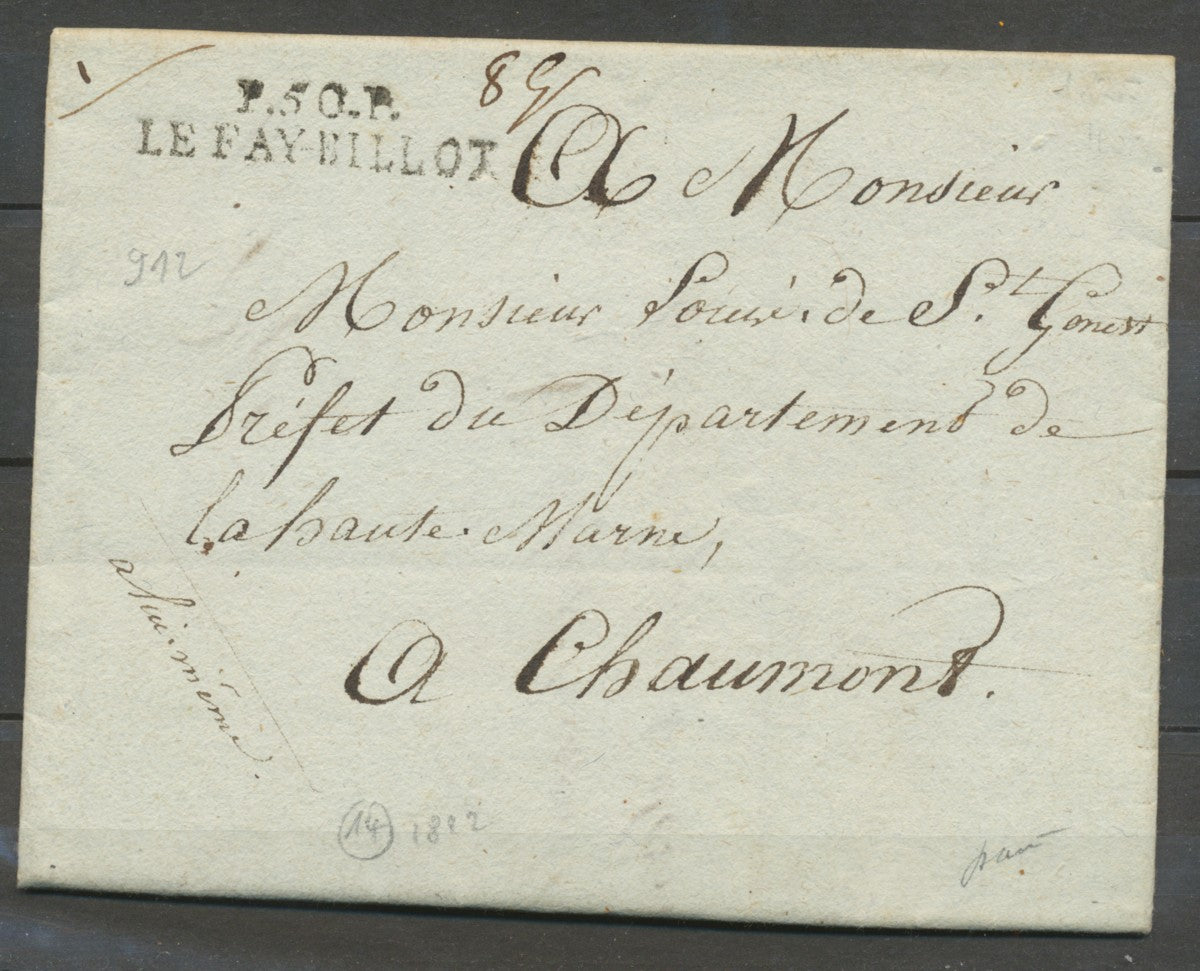 P.50.P.
LE FAY-BILLOT
A Monsieur
912
Monsieur de St. Genest
Préfet du Département de
la haute. Marne,
a lui. même.
A Chaumont.
14 1822